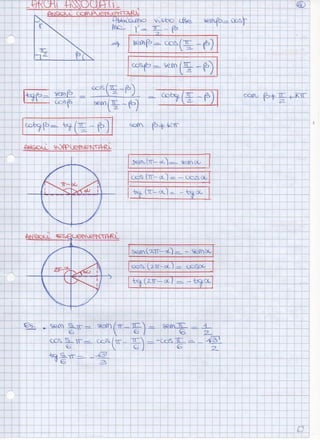 ARCHI ASSOCIATI
ANGOLI COMPLEMENTARI
ABBIAMO VISTO CHE senβ = cosγ
MA γ = π/2 - β
⇒ senβ = cos(π/2 - β)
cosβ = sen(π/2 - β)
γ
π/2
β
tgβ = senβ/cosβ = cos(π/2 - β)/sen(π/2 - β) = cotg(π/2 - β) con β ≠ π/2 + kπ
cotgβ = tg(π/2 - β) con β ≠ kπ
ANGOLI SUPPLEMENTARI
sen(π - α) = senα
cos(π - α) = - cosα
tg(π - α) = - tgα
π - α
α
ANGOLI ESPLEMENTARI
sen(2π - α) = - senα
cos(2π - α) = cosα
tg(2π - α) = - tgα
2π - α
α
Es. • sen 5/6 π = sen(π - π/6) = sen π/6 = 1/2
cos 5/6 π = cos(π - π/6) = - cos π/6 = - √3/2
tg 5/6 π = - √3/3